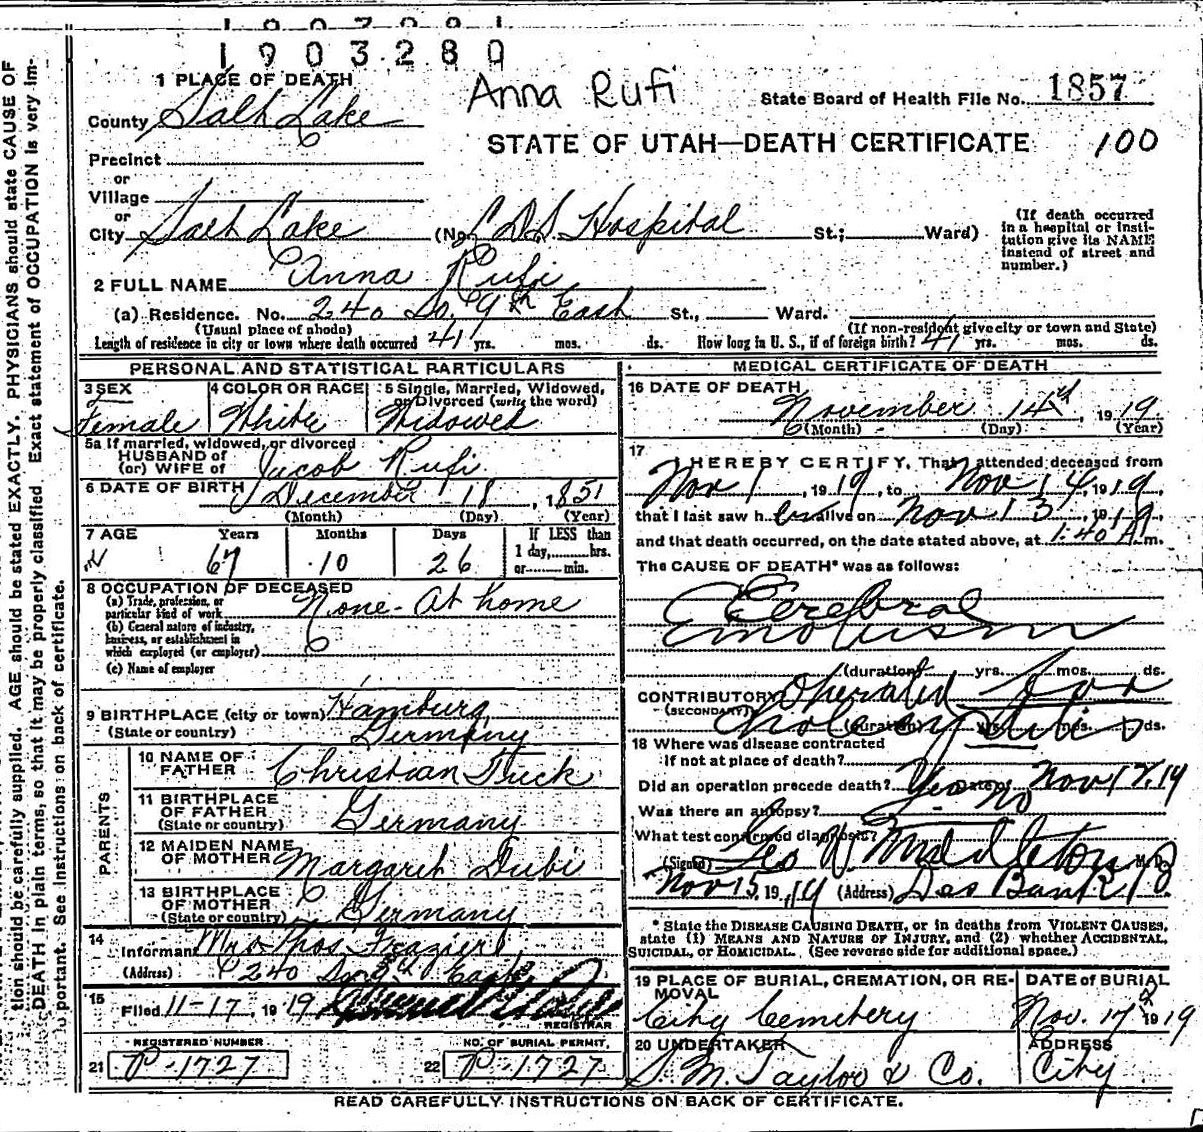 1903281
1903280
1 PLACE OF DEATH
Anna Rufi
State Board of Health File No. 1857
County Salt Lake
STATE OF UTAH—DEATH CERTIFICATE 100
Precinct
or
Village
or
City Salt Lake (No. L D S Hospital St.; Ward)
(If death occurred in a hospital or insti-
tution give its NAME
instead of street and
number.)
2 FULL NAME Anna Rufi
(a) Residence. No. 240 So. 9th East St., Ward.
(Usual place of abode) (If non-resident give city or town and State)
Length of residence in city or town where death occurred 41 yrs. mos. ds. How long in U. S., if of foreign birth? 41 yrs. mos. ds.
PERSONAL AND STATISTICAL PARTICULARS
3 SEX 4 COLOR OR RACE 5 Single, Married, Widowed,
or Divorced (write the word)
Female White Widowed
5a If married, widowed, or divorced
HUSBAND of
(or) WIFE of Jacob Rufi
6 DATE OF BIRTH December 18, 1851
(Month) (Day) (Year)
7 AGE Years Months Days If LESS than
1 day, hrs.
or min.
67 10 26
8 OCCUPATION OF DECEASED
(a) Trade, profession, or
particular kind of work None - At home
(b) General nature of industry,
business, or establishment in
which employed (or employer)
(c) Name of employer
9 BIRTHPLACE (city or town) Hamburg
(State or country) Germany
PARENTS
10 NAME OF
FATHER Christian Tuck
11 BIRTHPLACE
OF FATHER
(State or country) Germany
12 MAIDEN NAME
OF MOTHER Margaret Dubi
13 BIRTHPLACE
OF MOTHER
(State or country) Germany
14
Informant Mrs Thos Frazier
(Address) 240 So. East
15
Filed 11-17, 1919
REGISTRAR
REGISTERED NUMBER NO. OF BURIAL PERMIT.
21 P-1727 22 P-1727
MEDICAL CERTIFICATE OF DEATH
16 DATE OF DEATH
November 14th, 1919
(Month) (Day) (Year)
17
I HEREBY CERTIFY, That I attended deceased from
Nov 1, 1919, to Nov 14, 1919,
that I last saw her alive on Nov 13, 1919,
and that death occurred, on the date stated above, at 1:40 A.m.
The CAUSE OF DEATH* was as follows:
Cerebral
Embolism
(duration) yrs. mos. ds.
CONTRIBUTORY Operated for
(SECONDARY)
(duration) yrs. mos. ds.
18 Where was disease contracted
if not at place of death?
Did an operation precede death? Yes Date of Nov 12, 19
Was there an autopsy? No
What test confirmed diagnosis?
(Signed) Geo W Middleton, M. D.
Nov 15, 1919 (Address) Des Bank
* State the DISEASE CAUSING DEATH, or in deaths from VIOLENT CAUSES,
state (1) MEANS AND NATURE OF INJURY, and (2) whether ACCIDENTAL,
SUICIDAL, or HOMICIDAL. (See reverse side for additional space.)
19 PLACE OF BURIAL, CREMATION, OR RE-
MOVAL DATE of BURIAL
City Cemetery Nov. 17th 1919
20 UNDERTAKER ADDRESS
S. M. Taylor & Co. City
READ CAREFULLY INSTRUCTIONS ON BACK OF CERTIFICATE.
tion should be carefully supplied. AGE should be stated EXACTLY. PHYSICIANS should state CAUSE OF
DEATH in plain terms, so that it may be properly classified. Exact statement of OCCUPATION is very im-
portant. See instructions on back of certificate.